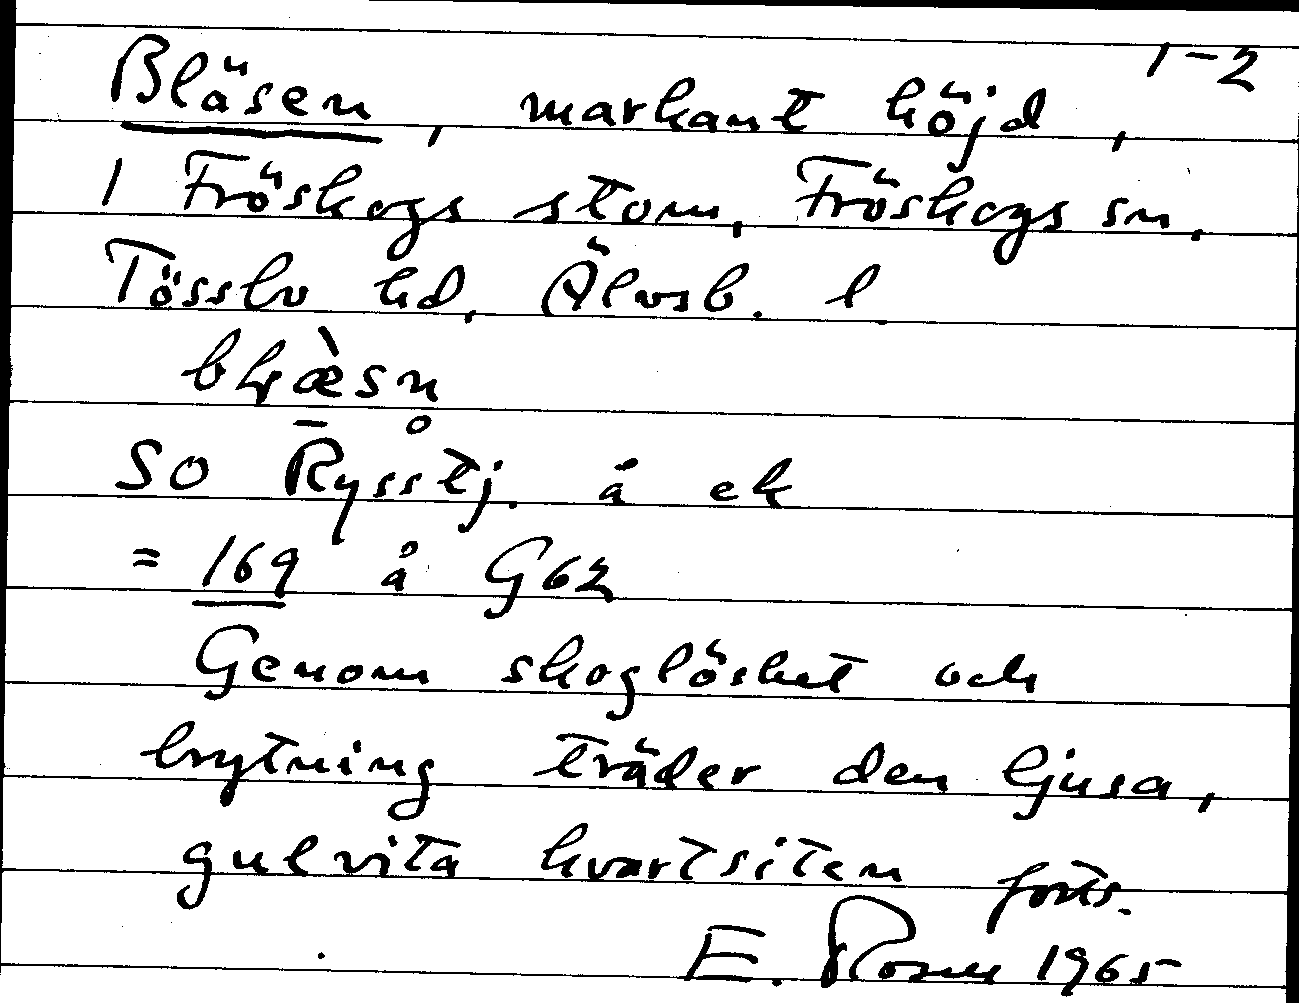 1-2
Bläsen, markant höjd,
1 Fröskogs stom, Fröskogs sn,
Tössbo hd, Älvsb. l.
SO Rysstj. å ek
= 169 å G62
Genom skoglöshet och
brytning träder den ljusa,
gulvita kvartsiten forts.
E. 1965